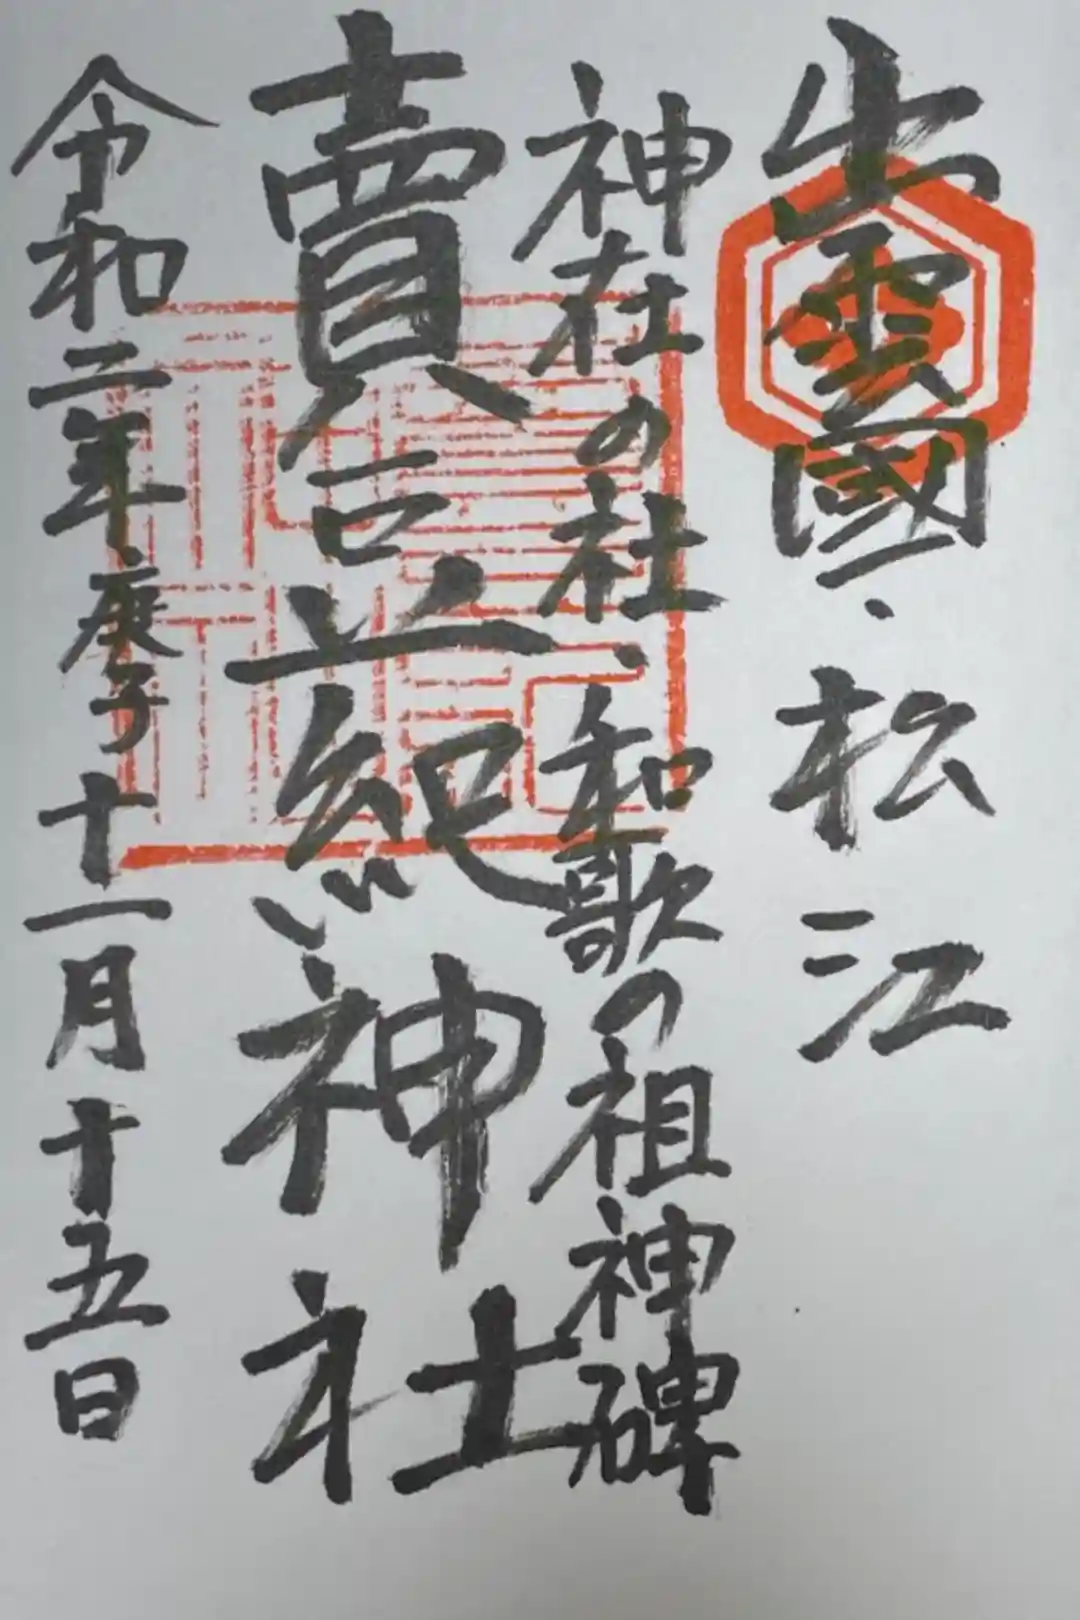 出雲國、松江
神在の社、和歌の祖神碑
賣豆紀神社
令和二年庚子十一月十五日